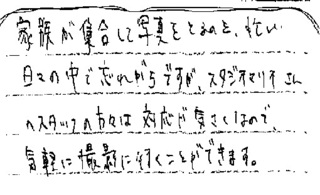 家族が集合して写真をとるのも、忙しい
日々の中で忘れがちですが、スタジオマリオさん
のスタッフの方々は対応が良さくなので、
気軽に撮影に行くことができます。